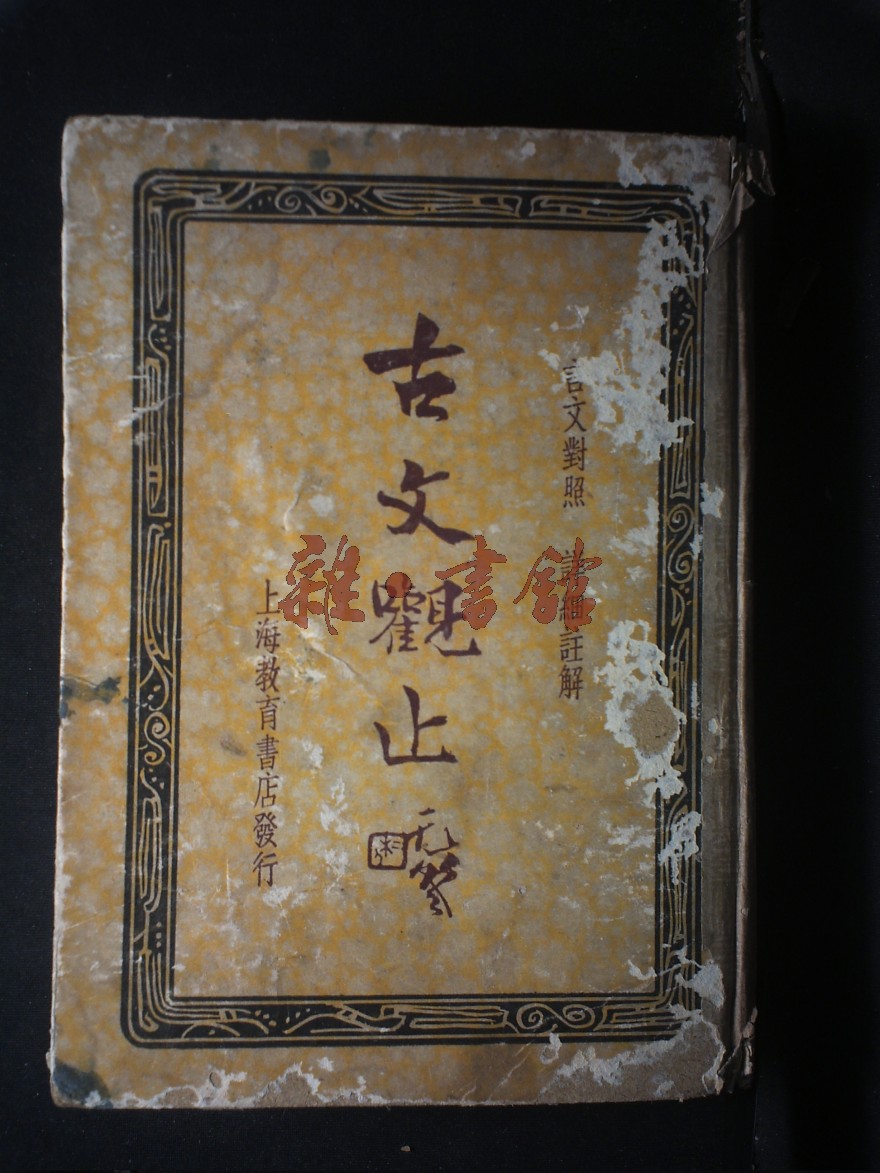 言文對照 詳細註解
古文觀止
上海教育書店發行
雜·書館